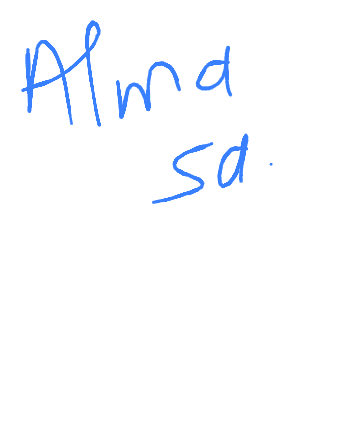 Alma
sd.